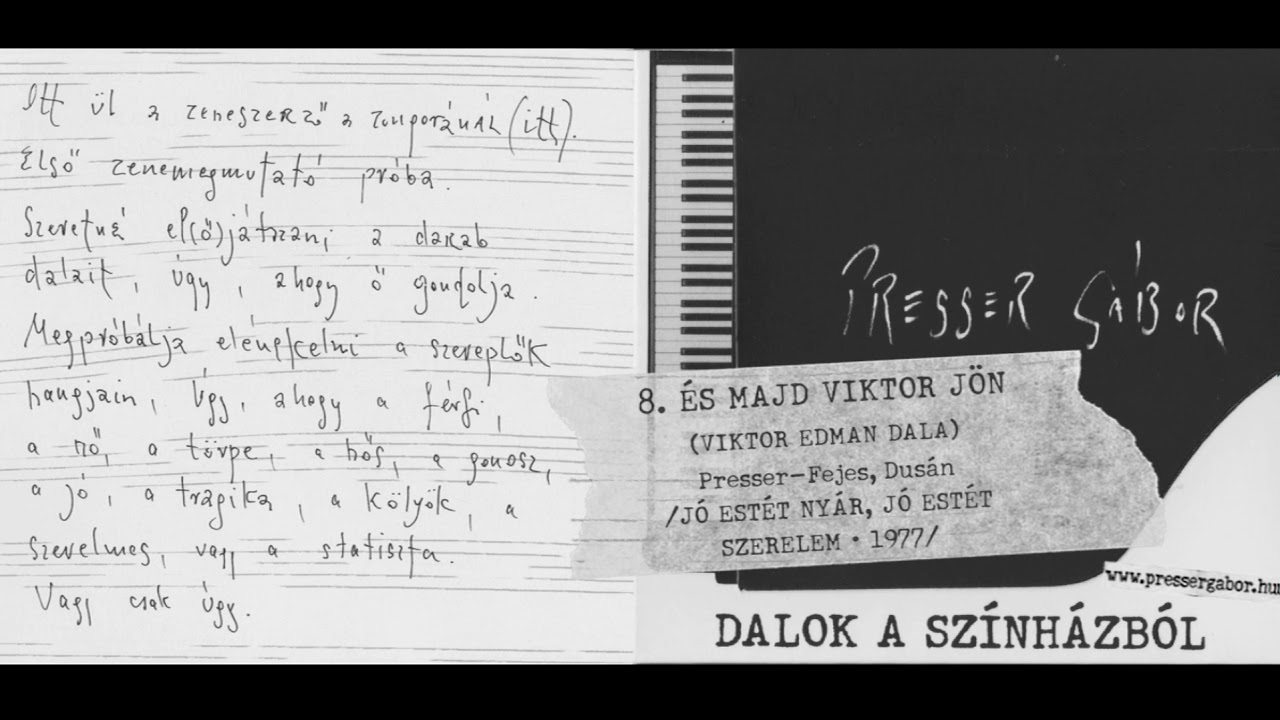 Itt ül a zeneszerző a zongoránál (itt).
Első zenemegmutató próba.
Szeretné el(ő)játszani a darab
dalait, úgy, ahogy ő gondolja.
Megpróbálja elénekelni a szereplők
hangjain, úgy, ahogy a férfi,
a nő, a törpe, a hős, a gonosz,
a jó, a tragika, a kölyök, a
szerelmes, vagy a statiszta.
Vagy csak úgy.
PRESSER GÁBOR
8. ÉS MAJD VIKTOR JÖN
(VIKTOR EDMAN DALA)
Presser-Fejes, Dusán
/JÓ ESTÉT NYÁR, JÓ ESTÉT
SZERELEM • 1977/
www.pressergabor.hu
DALOK A SZÍNHÁZBÓL